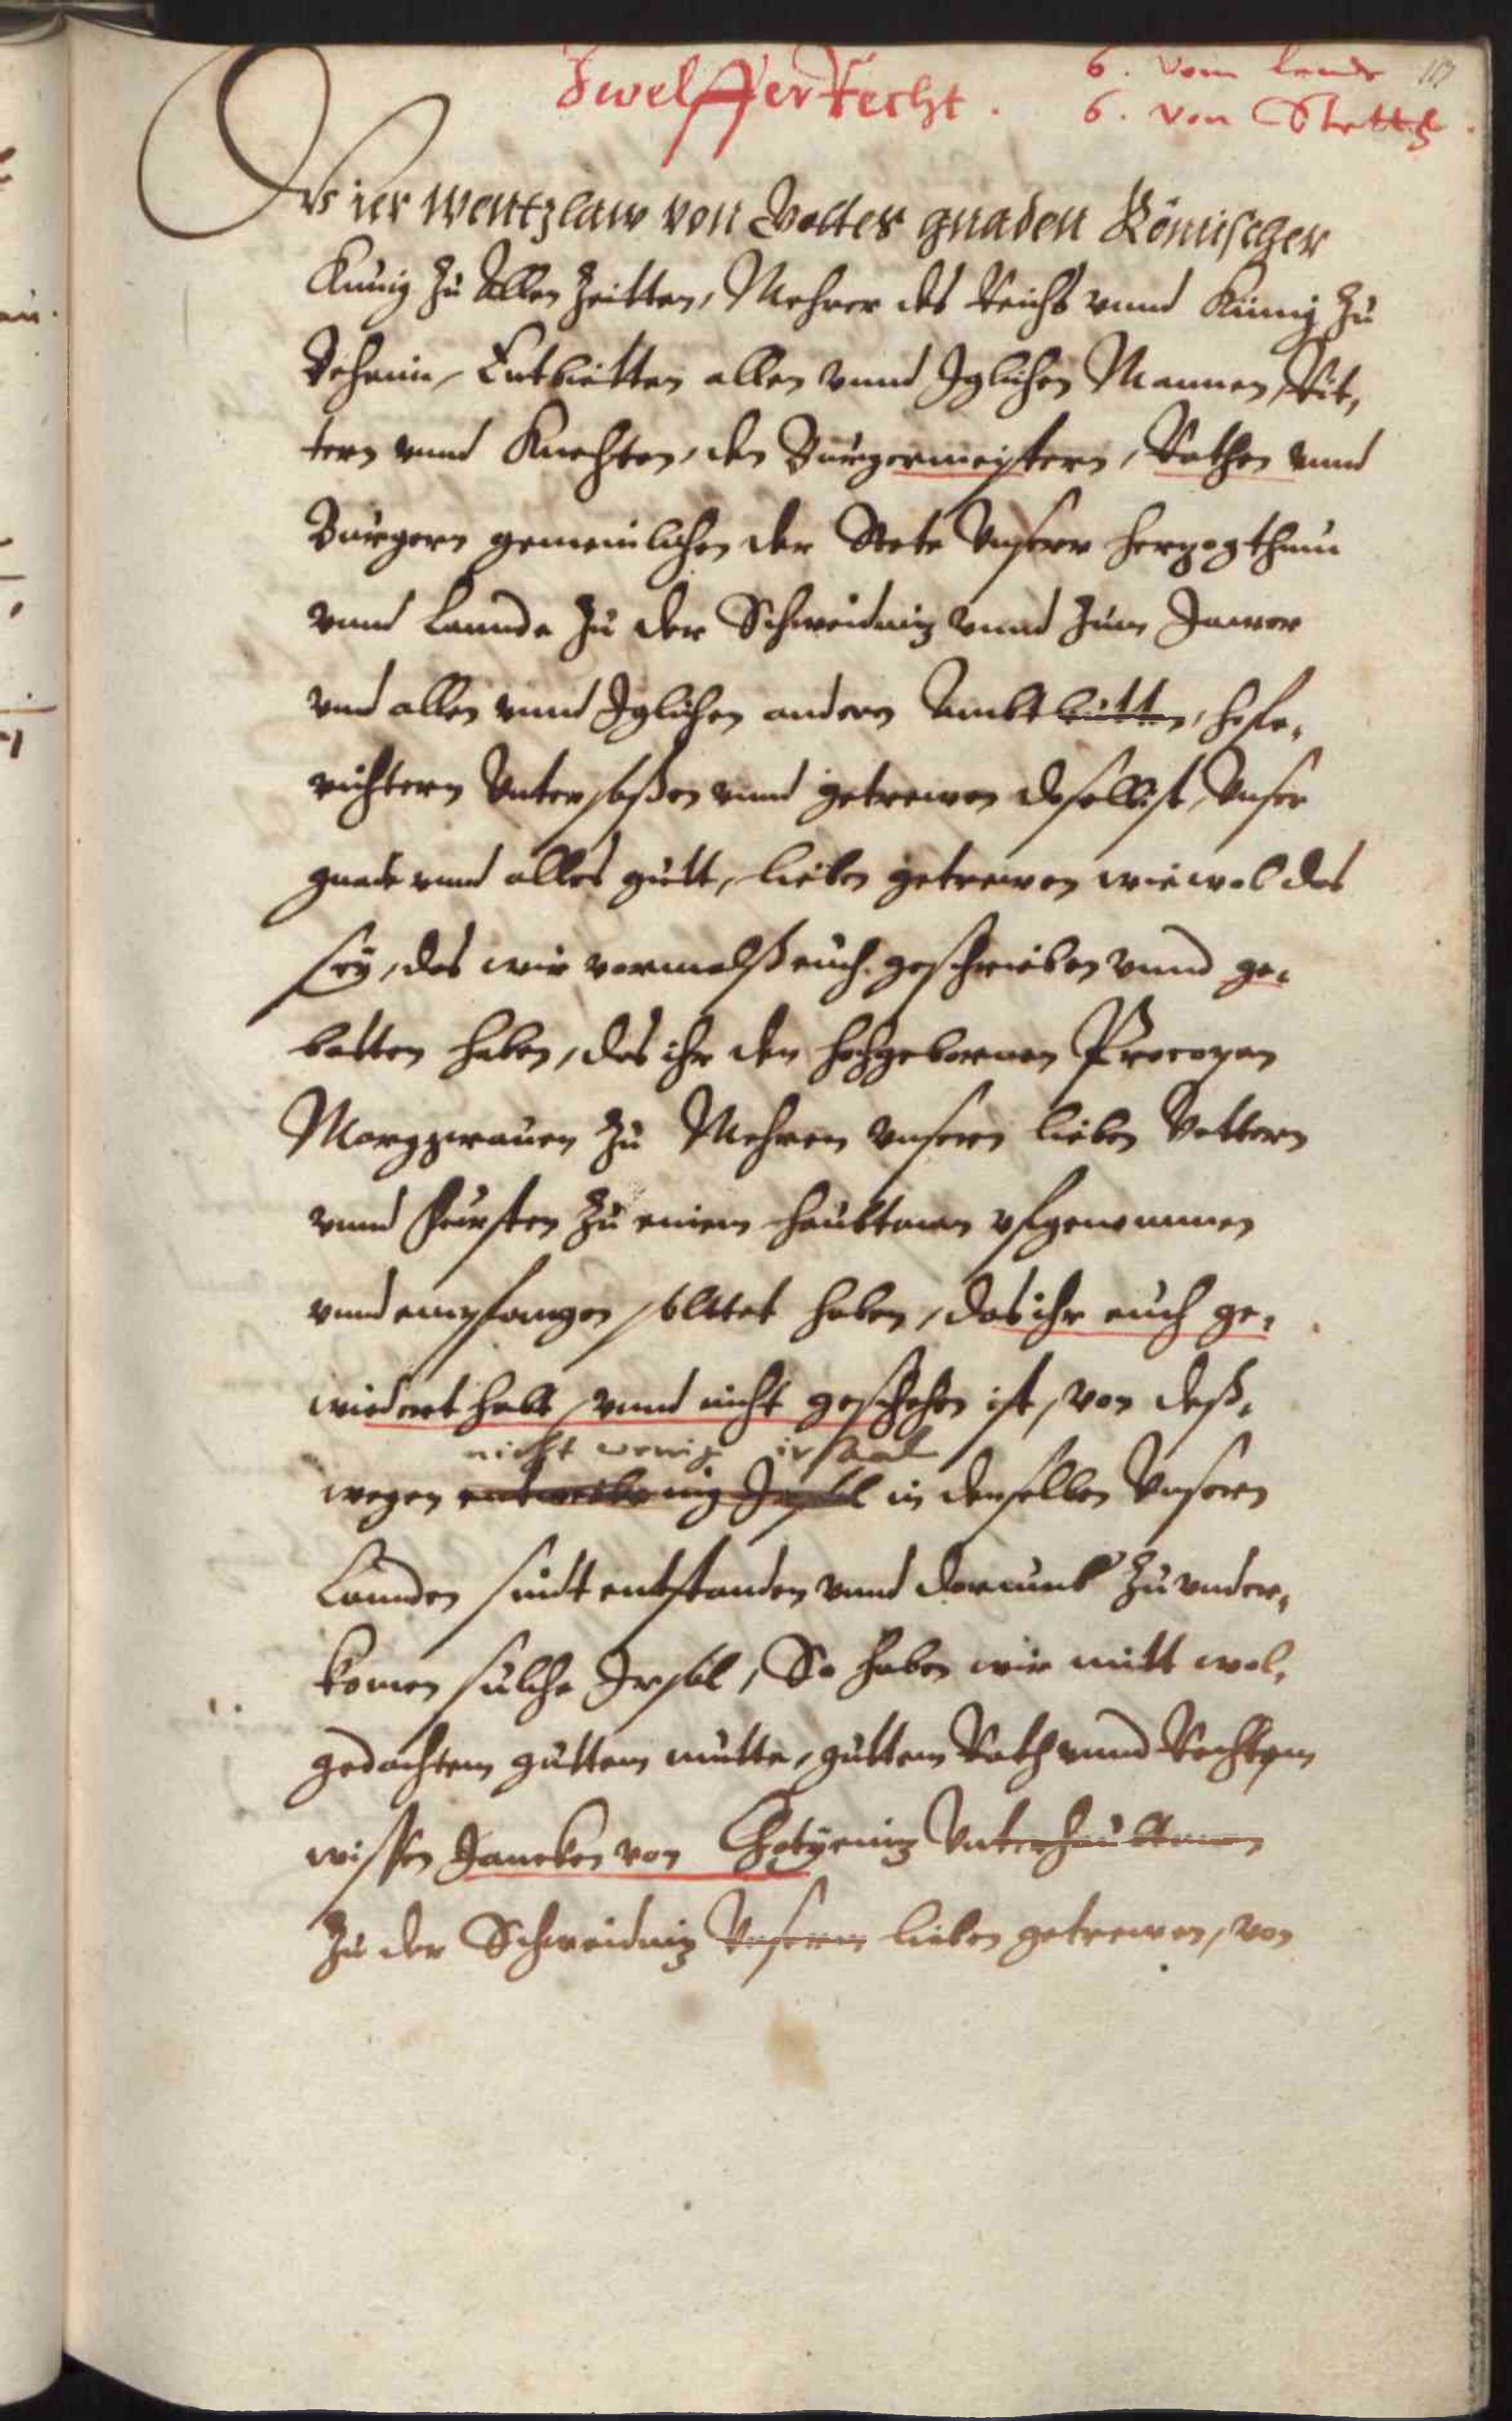 Zwelffer Recht.
6. vom lande
6. von Stetth.
Wier Wentzlaw von Gottes gnaden Römischer
Künig zu Allen Zeitten, Mehrer des Reichs vnnd Künig zu
Behaim, Entbietten allen vnnd Iglichen Mannen, Rit,
tern vnnd Knechten, den Bürgermeistern, Rathen vnnd
Bürgern gemeinlichen der Stete Vnserr herzogthum
vnnd Lannde zu der Schweidniz vnnd zum Jawer
vnd allen vnnd Iglichen andern Ambtleütten, hofe,
richtern Vntersaßen vnnd getrewen doselbist, Vnser
gnade vnnd alles gutt, lieben getrewen wiewol das
sey, das wir vormalß euch geschrieben vnnd ge,
botten haben, das ihr den hochgebornnen Procopen
Marggrauen zu Mehren vnsern lieben Vettern
vnnd Fürsten zu einem haubtman vfgenommen
vnnd empfangen solttet haben, das ihr euch ge,
wiedert habt, vnnd nicht geschehen ist, von deß,
nicht wenig irsaal
wegen in denselben Vnsern
Lannden sindt entstanden vnnd dorumb zu vnder,
komen sülche Irsal, So haben wir mitt wol,
gedachtem guttem mutte, guttem Rath vnnd Rechtem
wissen Jancken von Chotyeniz Vnterhaubtman
zu der Schweidniz Vnserm lieben getrewen, von